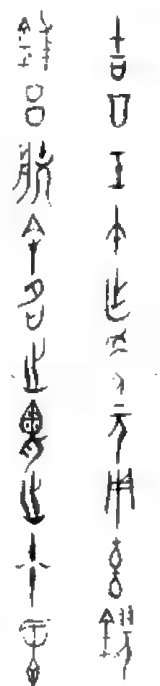 吉日壬午乍為元用玄鏐
鎛呂朕余名之胃之少虡